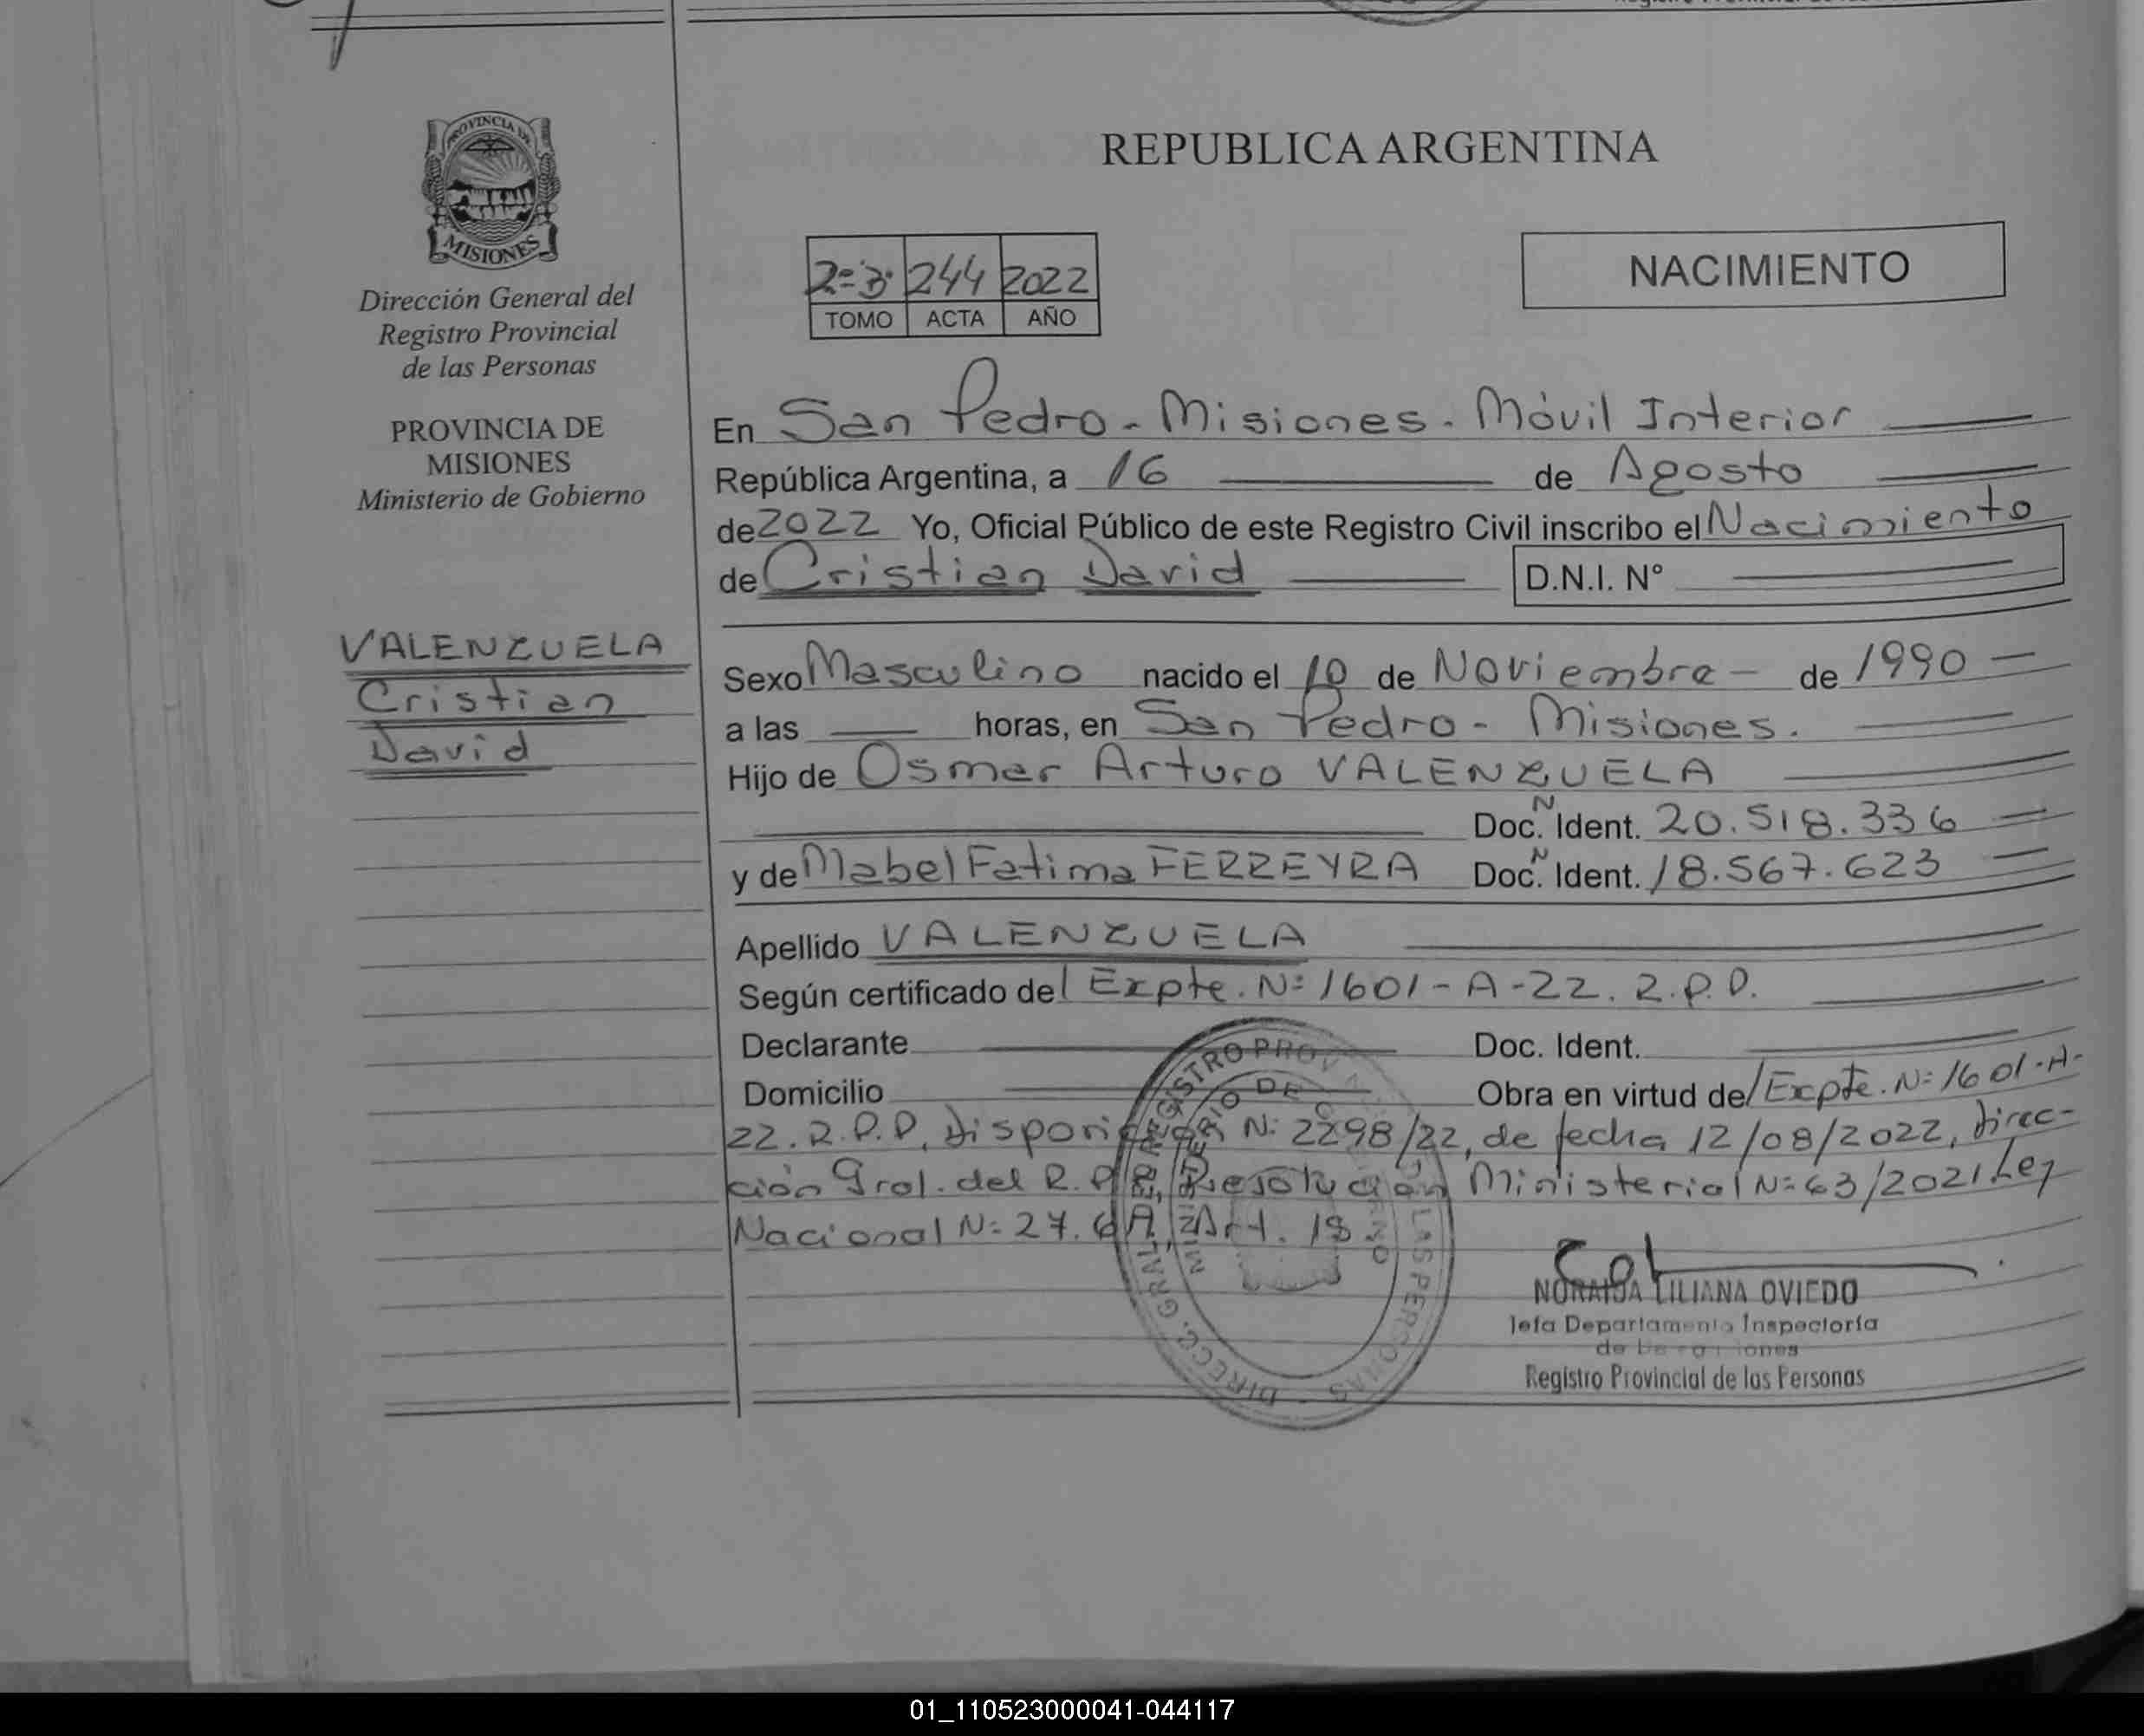 PROVINCIA DE
MISIONES
Dirección General del
Registro Provincial
de las Personas
PROVINCIA DE
MISIONES
Ministerio de Gobierno
VALENZUELA
Cristian
David
REPUBLICA ARGENTINA
2=3. 244 2022
TOMO ACTA AÑO
NACIMIENTO
En San Pedro - Misiones - Móvil Interior
República Argentina, a 16 de Agosto
de 2022 Yo, Oficial Público de este Registro Civil inscribo el Nacimiento
de Cristian David D.N.I. N°
Sexo Masculino nacido el 10 de Noviembre - de 1990
a las horas, en San Pedro - Misiones.
Hijo de Osmar Arturo VALENZUELA
Doc. N Ident. 20.518.336
y de Mabel Fatima FERREYRA Doc. N Ident. 18.567.623
Apellido VALENZUELA
Según certificado del Expte. N: 1601-A-22. R.P.P.
Declarante Doc. Ident.
Domicilio Obra en virtud del Expte. N: 1601-A-
22. R.P.P. Disposición N: 2298/22, de fecha 12/08/2022, Direc-
ción Gral. del R.P. Resolución Ministerial N: 63/2021 Ley
Nacional N: 27. Art. 18
DIRECC. GRAL. DEL REGISTRO PROV. DE LAS PERSONAS
MINISTERIO DE GOBIERNO
NORAIDA LILIANA OVIEDO
Jefa Departamento Inspectoría
Registro Provincial de las Personas
01_110523000041-044117